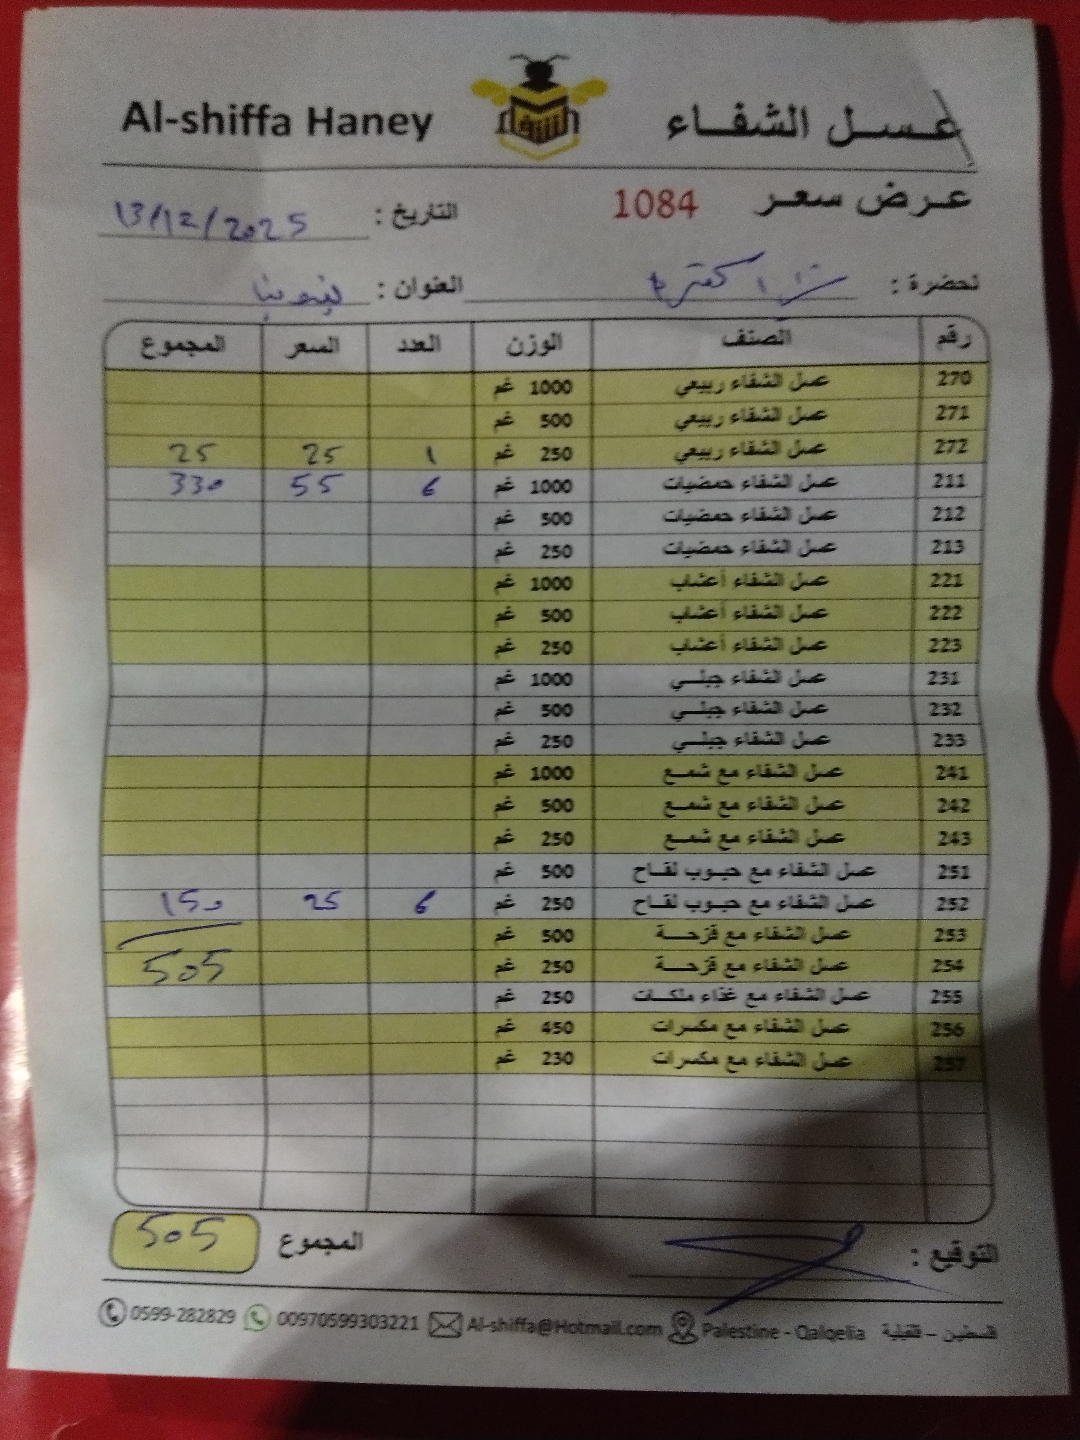 Al-shiffa Haney
عسل الشفاء
عرض سعر 1084
التاريخ : 13/12/2025
لحضرة :
العنوان :
رقم الصنف الوزن العدد السعر المجموع
270 عسل الشفاء ربيعي 1000 غم
271 عسل الشفاء ربيعي 500 غم
272 عسل الشفاء ربيعي 250 غم 1 25 25
211 عسل الشفاء حمضيات 1000 غم 6 55 330
212 عسل الشفاء حمضيات 500 غم
213 عسل الشفاء حمضيات 250 غم
221 عسل الشفاء أعشاب 1000 غم
222 عسل الشفاء أعشاب 500 غم
223 عسل الشفاء أعشاب 250 غم
231 عسل الشفاء جبلي 1000 غم
232 عسل الشفاء جبلي 500 غم
233 عسل الشفاء جبلي 250 غم
241 عسل الشفاء مع شمع 1000 غم
242 عسل الشفاء مع شمع 500 غم
243 عسل الشفاء مع شمع 250 غم
251 عسل الشفاء مع حبوب لقاح 500 غم
252 عسل الشفاء مع حبوب لقاح 250 غم 6 25 150
253 عسل الشفاء مع قزحة 500 غم
254 عسل الشفاء مع قزحة 250 غم 505
255 عسل الشفاء مع غذاء ملكات 250 غم
256 عسل الشفاء مع مكسرات 450 غم
257 عسل الشفاء مع مكسرات 230 غم
المجموع 505
التوقيع :
0599-282829 00970599303221 Al-shiffa@Hotmail.com Palestine - Qalqelia فلسطين - قلقيلية